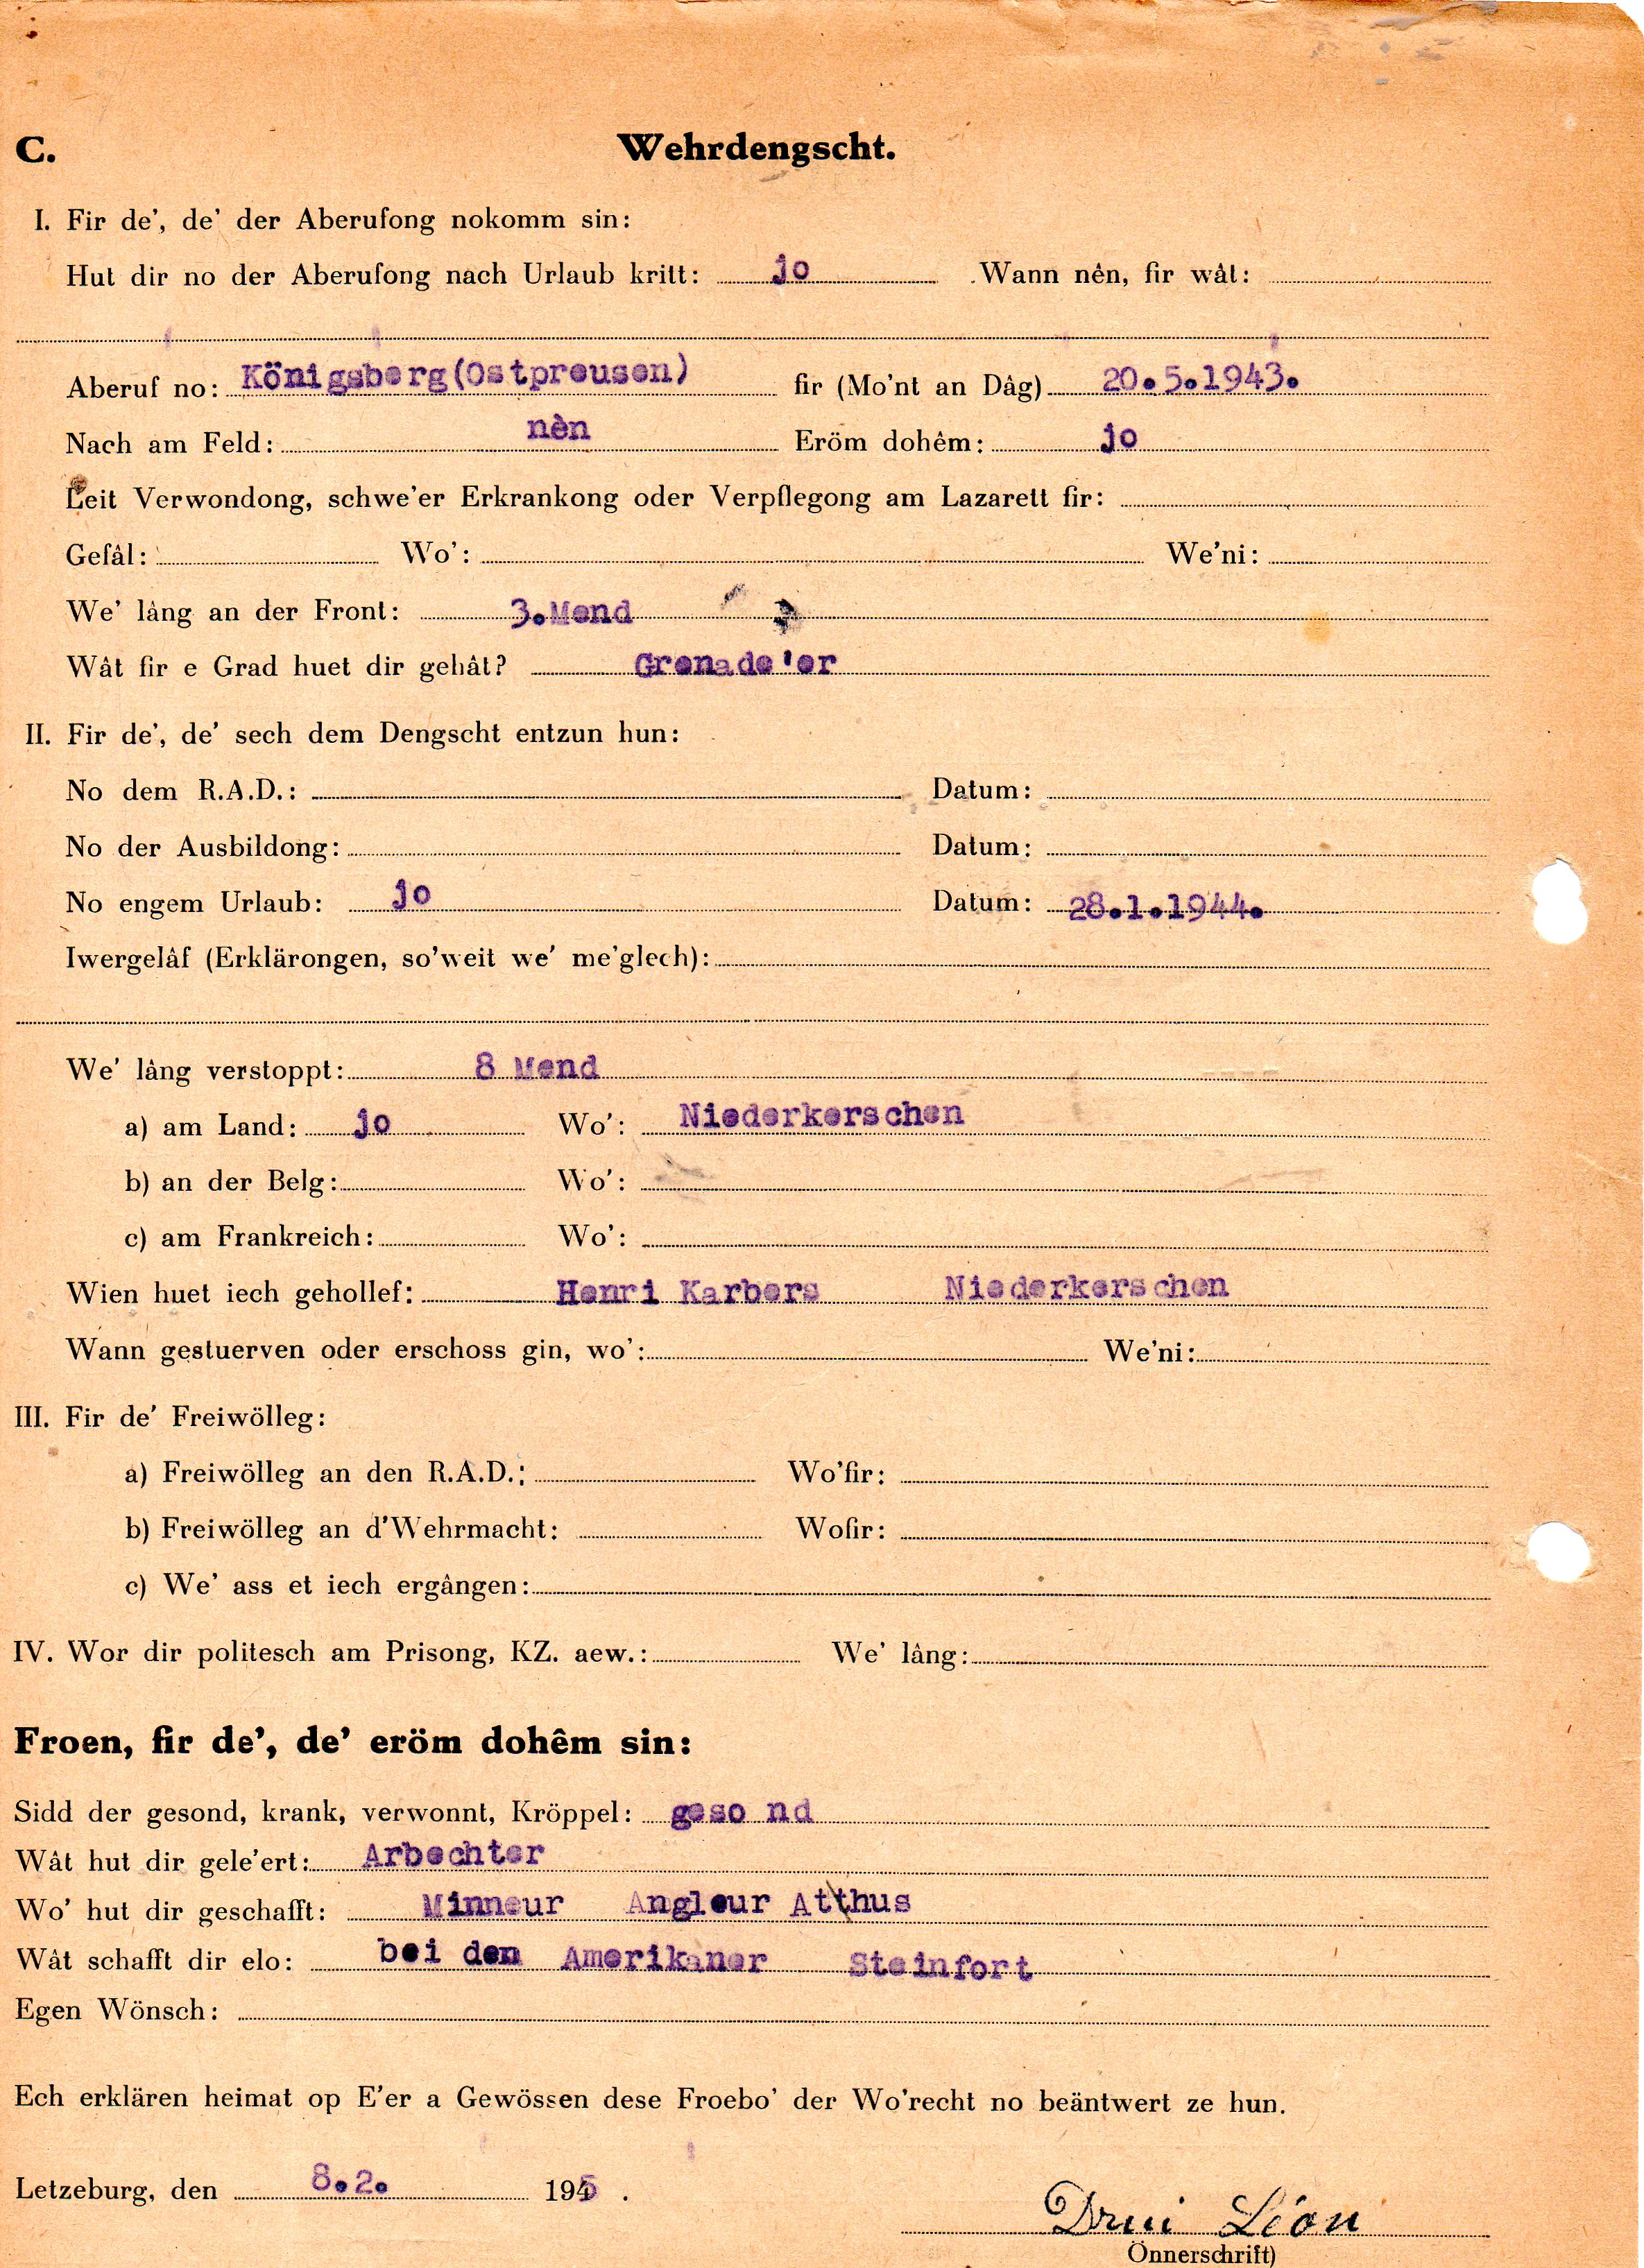 C. Wehrdengscht.
I. Fir de', de' der Aberufong nokomm sin:
Hut dir no der Aberufong nach Urlaub kritt: jo Wann nên, fir wât:
Aberuf no: Königsberg(Ostpreusen) fir (Mo'nt an Dâg) 20.5.1943.
Nach am Feld: nèn Eröm dohêm: jo
Leit Verwondong, schwe'er Erkrankong oder Verpflegong am Lazarett fir:
Gefâl: Wo': We'ni:
We' lâng an der Front: 3.Mend
Wât fir e Grad huet dir gehât? Grenade'er
II. Fir de', de' sech dem Dengscht entzun hun:
No dem R.A.D.: Datum:
No der Ausbildong: Datum:
No engem Urlaub: jo Datum: 28.1.1944.
Iwergelâf (Erklärongen, so'weit we' me'glech):
We' lâng verstoppt: 8 Mend
a) am Land: jo Wo': Niederkerschen
b) an der Belg: Wo':
c) am Frankreich: Wo':
Wien huet iech gehollef: Henri Karbers Niederkerschen
Wann gestuerven oder erschoss gin, wo': We'ni:
III. Fir de' Freiwölleg:
a) Freiwölleg an den R.A.D.: Wo'fir:
b) Freiwölleg an d'Wehrmacht: Wofir:
c) We' ass et iech ergângen:
IV. Wor dir politesch am Prisong, KZ. aew.: We' lâng:
Froen, fir de', de' eröm dohêm sin:
Sidd der gesond, krank, verwonnt, Kröppel: geso nd
Wât hut dir gele'ert: Arbechter
Wo' hut dir geschafft: Minneur Angleur Atthus
Wât schafft dir elo: bei den Amerikaner Steinfort
Egen Wönsch:
Ech erklären heimat op E'er a Gewössen dese Froebo' der Wo'recht no beäntwert ze hun.
Letzeburg, den 8.2. 1945.
Léon
Önnerschrift)